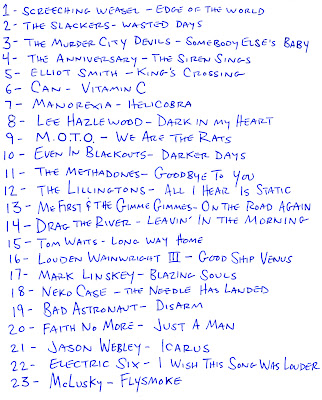 1- Screeching Weasel - Edge of the World
2- The Slackers- Wasted Days
3- The Murder City Devils - Somebody Else's Baby
4- The Anniversary - The Siren Sings
5- Elliot Smith - King's Crossing
6- Can - Vitamin C
7- Manorexia - Helicobra
8- Lee Hazlewood - Dark in my Heart
9- M.O.T.O. - We Are The Rats
10- Even In Blackouts - Darker Days
11- The Methadones - Goodbye To You
12- The Lillingtons - All I Hear Is Static
13- Me First & The Gimme Gimmes - On The Road Again
14- Drag The River - Leavin' In The Morning
15- Tom Waits - Long Way Home
16- Louden Wainwright III - Good Ship Venus
17- Mark Linskey - Blazing Souls
18- Neko Case - The Needle Has Landed
19- Bad Astronaut - Disarm
20- Faith No More - Just A Man
21- Jason Webley - Icarus
22- Electric Six - I Wish This Song Was Louder
23- McLusky - Flysmoke